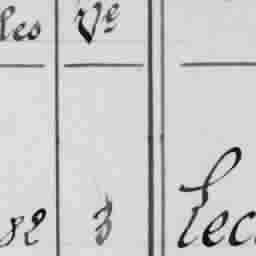 les Ve
82 3 Lec